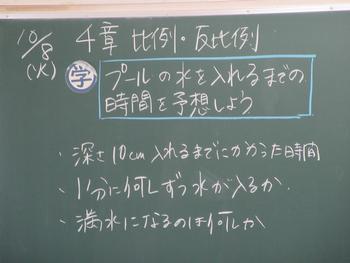 10/8 4章 比例・反比例
(火)
学 プールの水を入れるまでの
時間を予想しよう
・深さ10cm入れるまでにかかった時間
・1分に何Lずつ水が入るか.
・満水になるのは何Lか